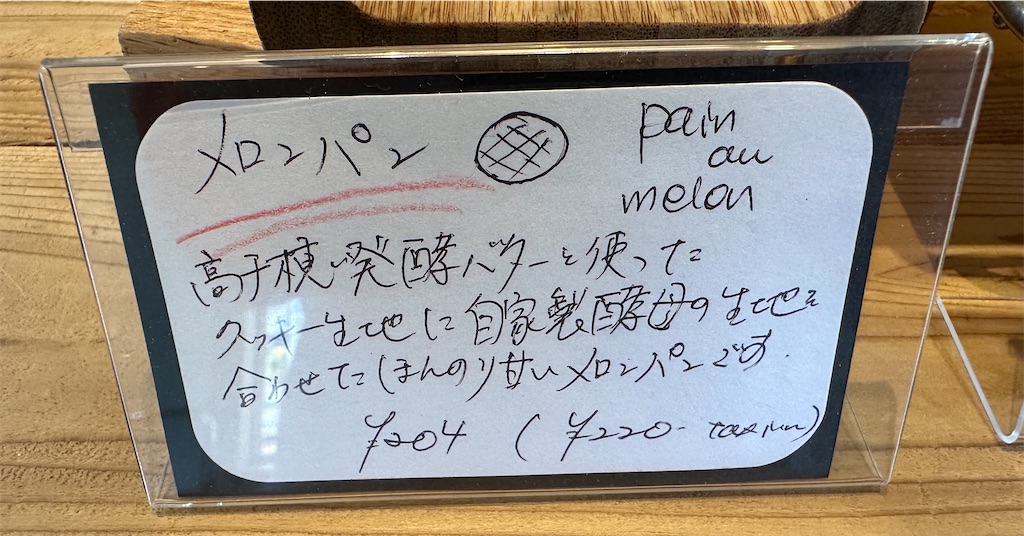 メロンパン
pain
au
melon
高千穂発酵バターを使った
クッキー生地に自家製酵母の生地を
合わせてほんのり甘いメロンパンです.
¥204 (¥220- tax in)